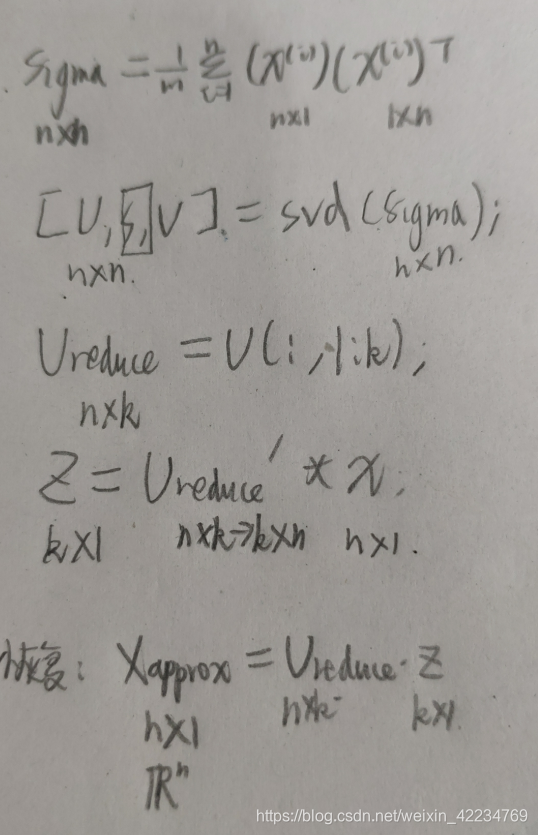 Sigma = 1/m Σ_{i=1}^{n} (x^(i))(x^(i))^T
n×n n×1 1×n
[U,S,V] = svd(Sigma);
n×n. n×n.
Ureduce = U(:,1:k);
n×k
Z = Ureduce' * x.
k×1 n×k→k×n n×1.
恢复: Xapprox = Ureduce· Z
n×1 n×k· k×1.
ℝ^n
https://blog.csdn.net/weixin_42234769